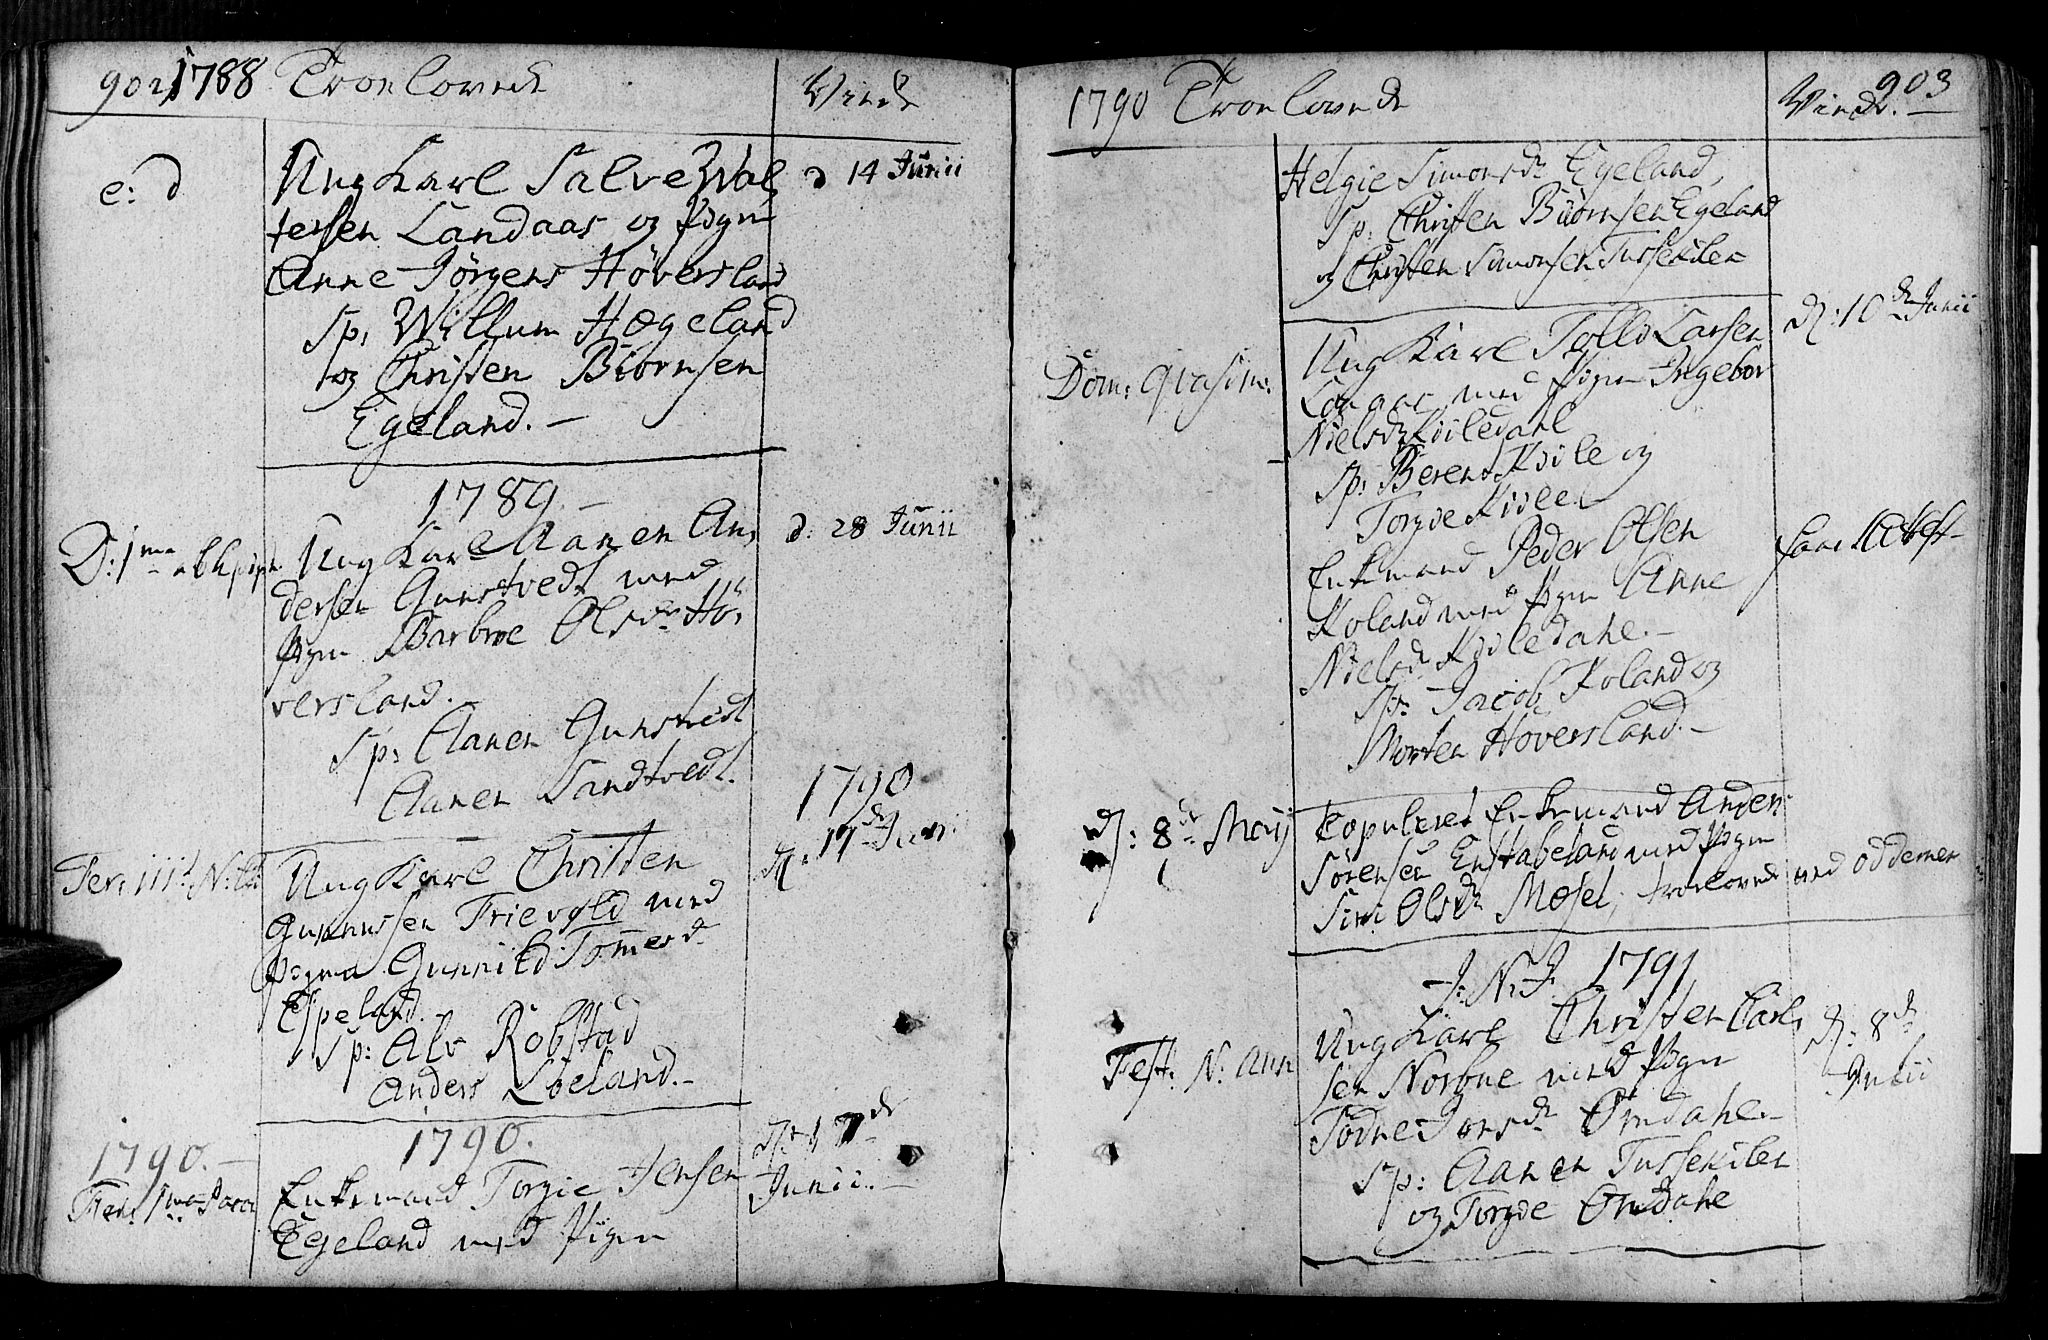 902 1788 Troelovede Viede
e: d
Ung Karl Salve Wol,
tersen Landaas og Pigen
Anne Jörgens Höversland
Sp: Willum Hægeland
og Christen Biörnsen
Egeland. —
d 14 Junii
1789. —
D: 1ma
Ung Karl Aanen An,
dersen Gunstvedt med
Pigen Barbroe Olsdr Hö,
versland.
Sp: Aanen Gunstvedt
Aanen Sandtvedt.
d: 28 Junii
Fer: iii N:
Ung Karl Christen
Gunnussen Trievold med
Pigen Gunnild Tommesd.
Espeland.
Sp: Alv Röbstad
Anders Loeland. —
1790
d: 17de Junii
1790. —
Fer: 1ma Pasch
1790.
Enkemand Torgie Jensen
Egeland med Pigen
d: 17de
Junii. —
1790 Troelovede Viede. — 903
Helgie Simonsd. Egeland,
Sp: Christen Biörnsen Egeland
og Christen Simonsen Tussekilen
Dom: Qvasim:
Ung Karl Tolle Larsen
med Pigen Ingebor
Nielsd. Kviledahl
Sp: Berent Kvile og
Torgde Kvile
d: 10de Junii
Enkemand Peder Olsen
Roland med Pigen Anne
Nielsd Kviledahl. —
Sp: Jacob Roland og
Morten Höversland. —
d: 8de Maij
Copuleret Enkemand Anders
Sörensen Enstabeland med Pigen
Siri Olsd. Mosel, troelovede ved Oddernes
J: N: J: 1791
Fest: N: Ann
Ung Karl Christen Carl,
sen Norbue med Pigen
Todne Jonsd. Omdahl. —
Sp: Aanen Tussekilen
og Torgde Omdahl
d: 8de
Julii